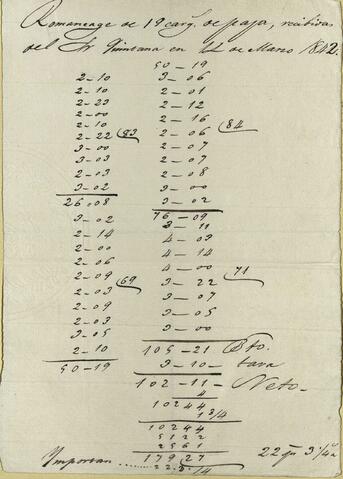 Romaneage de 19 carg.s de paja, recibiras
del Sr Quintana en 12 de Marzo 1842.
2-10
2-10
2-23
2-00
2-10
2-22 (83
3-00
3-03
2-03
3-02
26-08
3-02
2-14
2-00
2-06
2-09 (69
2-03
2-09
2-03
3-05
2-10
50-19
50-19
3-06
2-01
2-12
2-16
2-06 (84
2-07
2-07
2-08
3-00
3-02
76-09
3-11
4-03
4-14
4-00
3-22 (71
3-07
3-05
3-00
105-21 Bto.
3-10- tara
102-11- Neto-
4
10244
1 3/4
10244
5122
2561
17927
Importan ........ 22.3 1/4
22 3 1/4